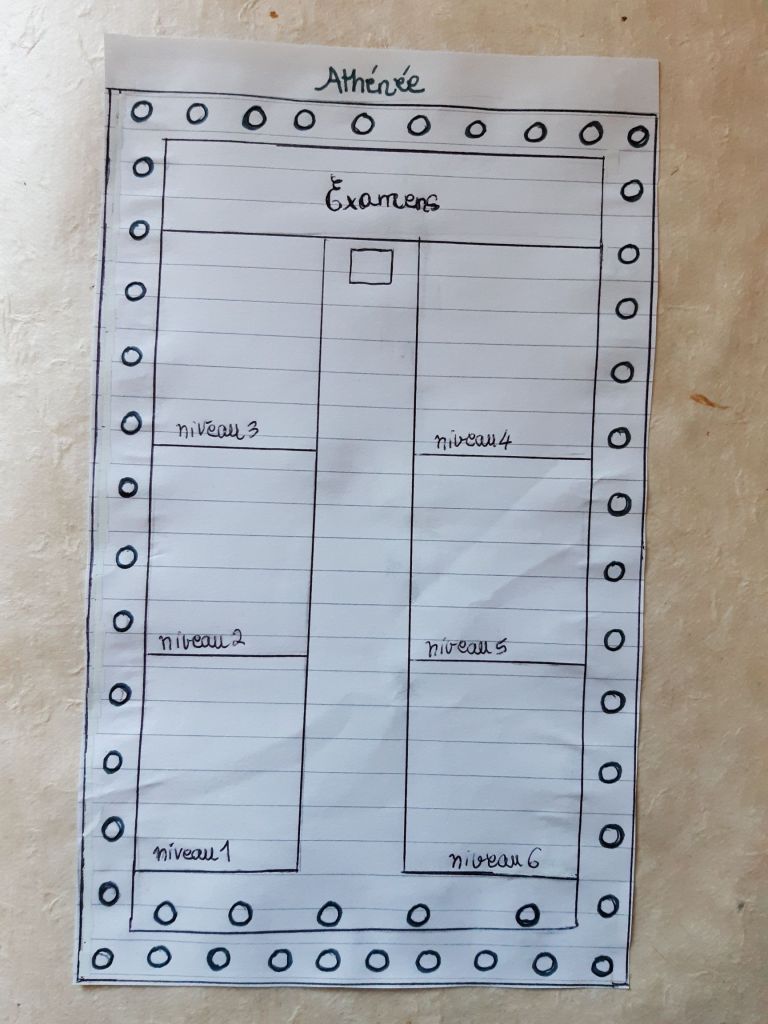 Athénée
Examens
niveau 3
niveau 4
niveau 2
niveau 5
niveau 1
niveau 6